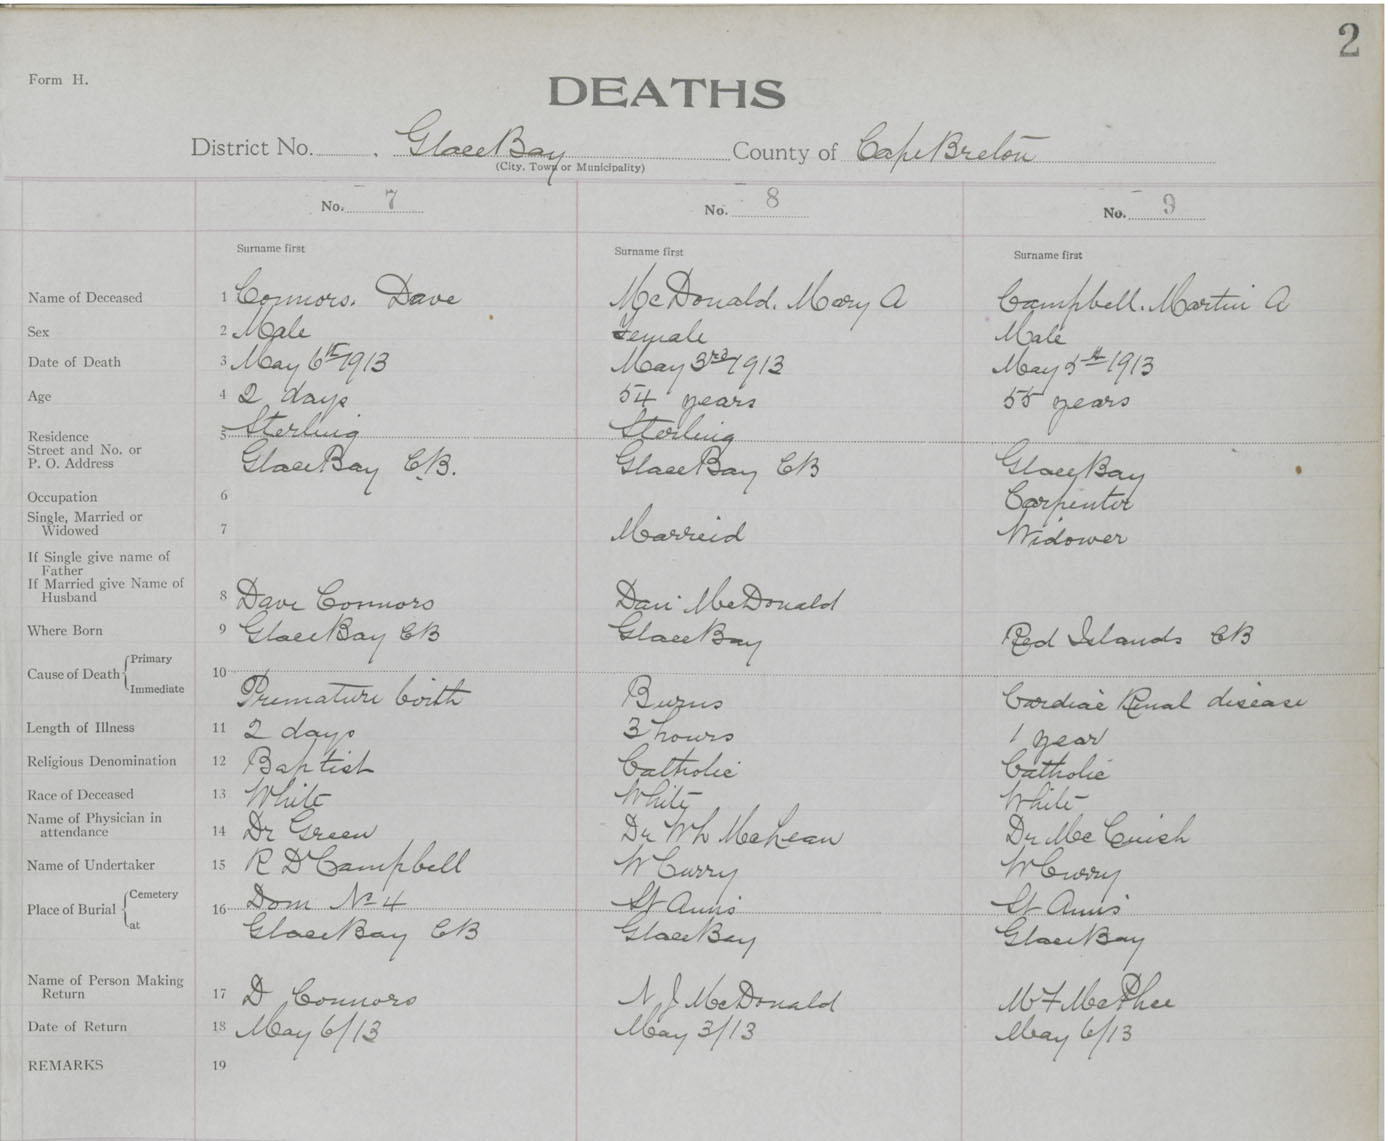 2
Form H.
DEATHS
District No. Glace Bay County of Cape Breton
(City, Town or Municipality)
No. 7 No. 8 No. 9
Surname first Surname first Surname first
Name of Deceased 1 Connors. Dave McDonald. Mary A Campbell. Martin A
Sex 2 Male Female Male
Date of Death 3 May 6th 1913 May 3rd 1913 May 5th 1913
Age 4 2 days 54 years 55 years
Residence 5 Sterling Sterling
Street and No. or
P. O. Address Glace Bay C.B. Glace Bay CB Glace Bay
Occupation 6 Carpenter
Single, Married or
Widowed 7 Marreid Widower
If Single give name of
Father
If Married give Name of
Husband 8 Dave Connors Dan McDonald
Where Born 9 Glace Bay CB Glace Bay Red Islands CB
Cause of Death Primary 10
Immediate Premature birth Burns Cardiac Renal disease
Length of Illness 11 2 days 3 hours 1 year
Religious Denomination 12 Baptist Catholic Catholic
Race of Deceased 13 White White White
Name of Physician in
attendance 14 Dr Green Dr Wh McLean Dr McCuish
Name of Undertaker 15 R D Campbell W Curry W Curry
Place of Burial Cemetery 16 Dom No 4 St Anns St Anns
at Glace Bay CB Glace Bay Glace Bay
Name of Person Making
Return 17 D Connors N J McDonald M F McPhee
Date of Return 18 May 6/13 May 3/13 May 6/13
REMARKS 19